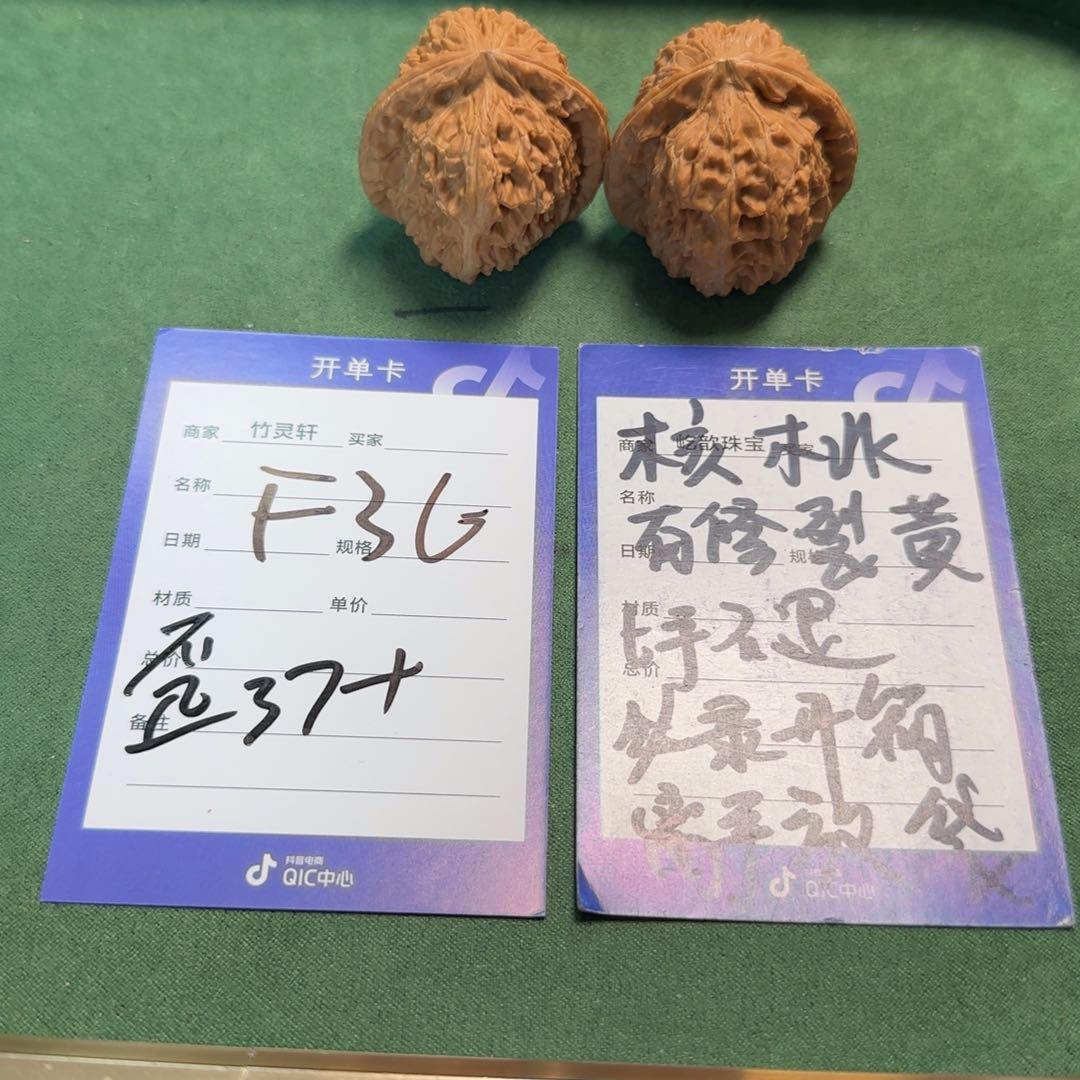 开单卡
商家 竹灵轩 买家
名称
F36
日期 规格
材质 单价
总价
歪37+
备注
抖音电商
QIC中心
开单卡
商家 屹歆珠宝 买家
核桃
名称
有修裂黄
日期 规格
材质
上手不退
总价
必录开箱
QIC中心